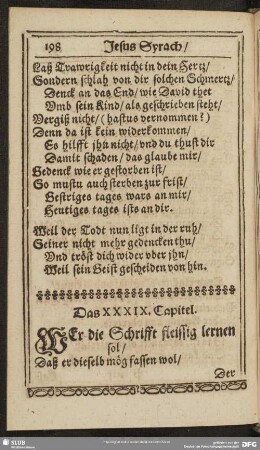 198 Jesus Syrach/
Laß Trawrigkeit nicht in dein Hertz/
Sondern schlah von dir solchen Schmertz/
Denck an das End/ wie David thet
Vmb sein Kind/ als geschrieben steht/
Vergiß nicht/ (hastus vernommen?)
Denn da ist kein widerkommen/
Es hilfft jhn nicht/ vnd du thust dir
Damit schaden/ das glaube mir/
Gedenck wie er gestorben ist/
So mustu auch sterben zur frist/
Gestriges tages wars an mir/
Heutiges tages ists an dir.
Weil der Todt nun ligt in der ruh/
Seiner nicht mehr gedencken thu/
Vnd tröst dich wider vber jhn/
Weil sein Geist gescheiden von hin.
Das XXXIX. Capitel.
WEr die Schrifft fleissig lernen
sol/
Daß er dieselb mög fassen wol/
Der
SLUB
DFG